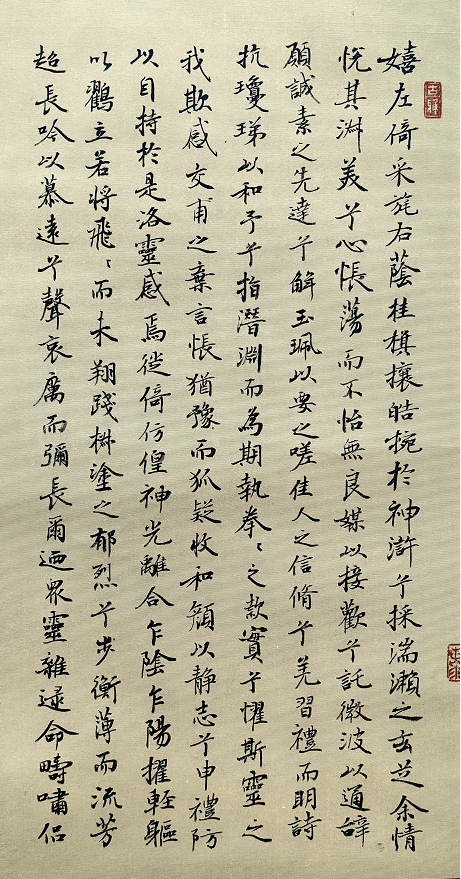 嬉左倚采旄右蔭桂旗攘皓捥於神滸兮採湍瀨之玄芝余情
悅其淑美兮心悵蕩而不怡無良媒以接歡兮託微波以通辭
願誠素之先達兮解玉珮以要之嗟佳人之信脩兮羌習禮而明詩
抗瓊珶以和予兮指潛淵而為期執拳〻之款實兮懼斯靈之
我欺感交甫之棄言悵猶豫而狐疑收和顏以静志兮申禮防
以自持於是洛靈感焉徙倚仿偟神光離合乍陰乍陽擢輕軀
以鸛立若將飛〻而未翔踐椒塗之郁烈兮步衡薄而流芳
超長吟以慕遠兮聲哀厲而彌長爾迺眾靈雜遝命疇嘯侶
古雅